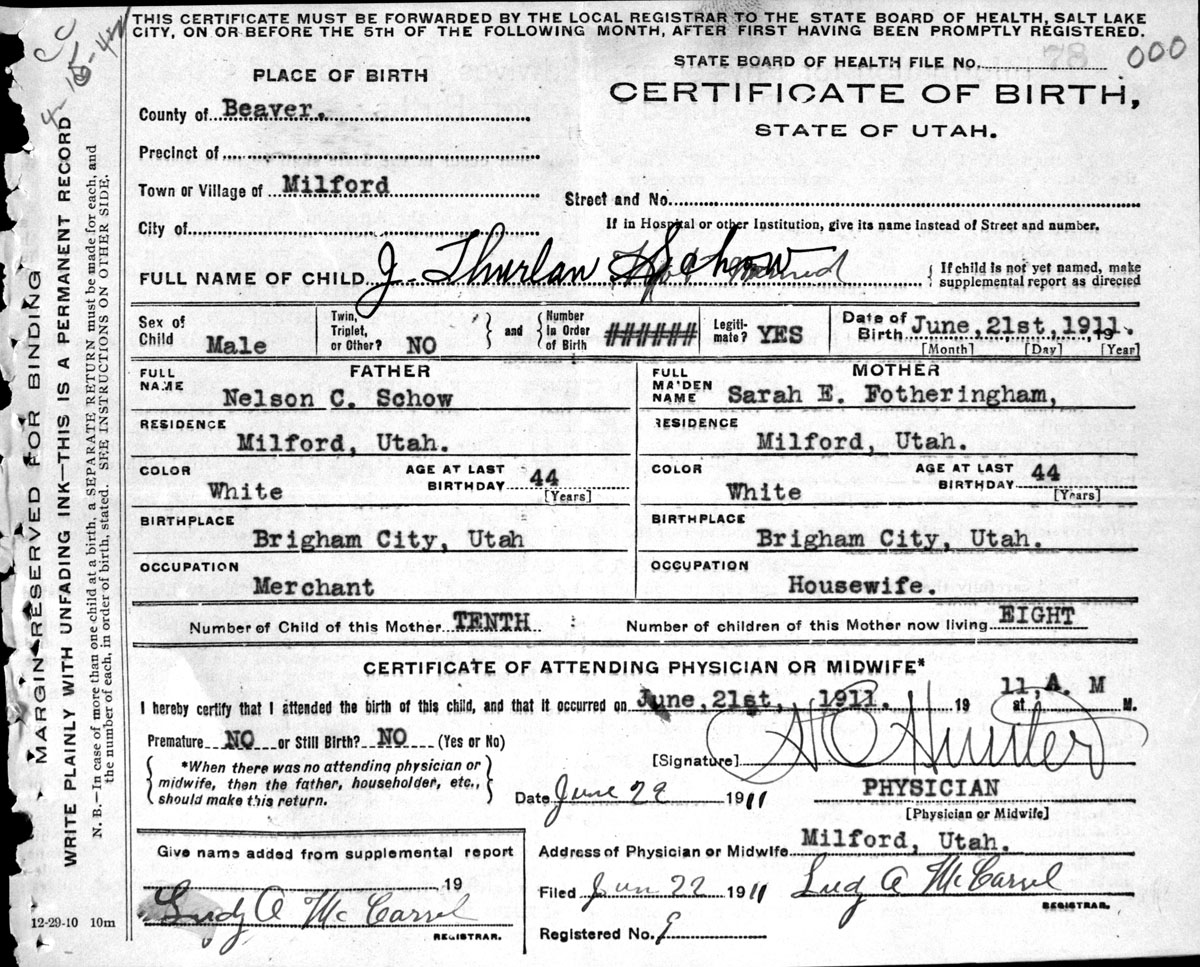 THIS CERTIFICATE MUST BE FORWARDED BY THE LOCAL REGISTRAR TO THE STATE BOARD OF HEALTH, SALT LAKE
CITY, ON OR BEFORE THE 5TH OF THE FOLLOWING MONTH, AFTER FIRST HAVING BEEN PROMPTLY REGISTERED.
STATE BOARD OF HEALTH FILE No. 78 000
PLACE OF BIRTH
CERTIFICATE OF BIRTH,
STATE OF UTAH.
County of Beaver.
Precinct of
Town or Village of Milford
Street and No.
City of
If in Hospital or other Institution, give its name instead of Street and number.
FULL NAME OF CHILD J. Thurlan Schow
If child is not yet named, make
supplemental report as directed
Sex of Child Male
Twin, Triplet, or Other? NO
and Number In Order of Birth ######
Legitimate? YES
Date of Birth June, 21st, 1911. 19
[Month] [Day] [Year]
FATHER
FULL NAME Nelson C. Schow
RESIDENCE
Milford, Utah.
COLOR White
AGE AT LAST BIRTHDAY 44 [Years]
BIRTHPLACE
Brigham City, Utah
OCCUPATION
Merchant
MOTHER
FULL MAIDEN NAME Sarah E. Fotheringham,
RESIDENCE
Milford, Utah.
COLOR White
AGE AT LAST BIRTHDAY 44 [Years]
BIRTHPLACE
Brigham City, Utah.
OCCUPATION
Housewife.
Number of Child of this Mother TENTH Number of children of this Mother now living EIGHT
CERTIFICATE OF ATTENDING PHYSICIAN OR MIDWIFE*
I hereby certify that I attended the birth of this child, and that it occurred on June, 21st, 1911. 19 at 11, A. M M.
Premature NO or Still Birth? NO (Yes or No)
*When there was no attending physician or
midwife, then the father, householder, etc.,
should make this return.
[Signature] Hunter
Date June 22 1911
PHYSICIAN
[Physician or Midwife]
Give name added from supplemental report
19
Ludy A McCarrel
REGISTRAR.
Address of Physician or Midwife Milford, Utah.
Filed Jun 22 1911 Ludy A McCarrel
REGISTRAR.
Registered No. 9
12-29-10 10m
MARGIN RESERVED FOR BINDING
WRITE PLAINLY WITH UNFADING INK—THIS IS A PERMANENT RECORD
N. B.—In case of more than one child at a birth, a SEPARATE RETURN must be made for each, and
the number of each, in order of birth, stated. SEE INSTRUCTIONS ON OTHER SIDE.